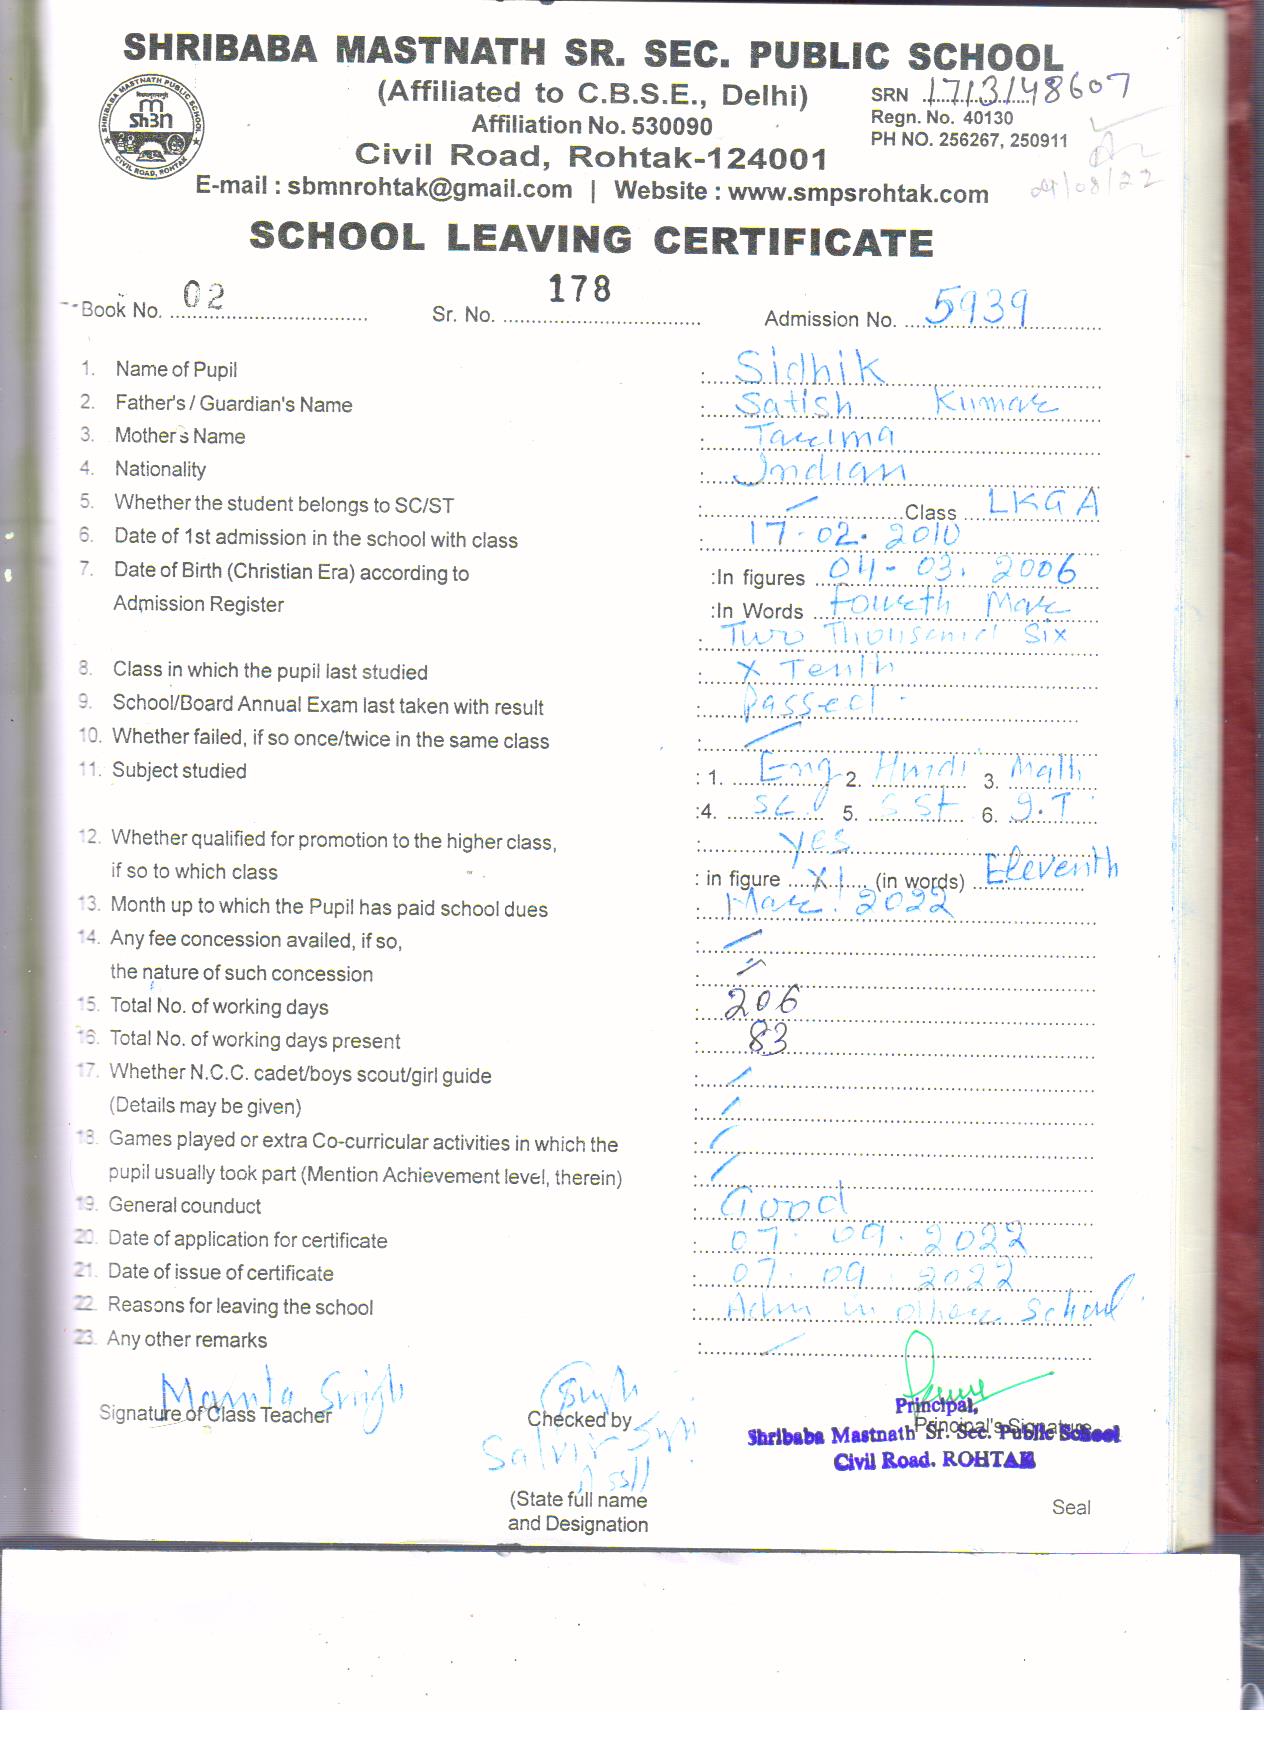 SHRIBABA MASTNATH SR. SEC. PUBLIC SCHOOL
(Affiliated to C.B.S.E., Delhi)
SRN 1713148607
Affiliation No. 530090
Regn. No. 40130
Civil Road, Rohtak-124001
PH NO. 256267, 250911
SHRIBABA MASTNATH PUBLIC SCHOOL
CIVIL ROAD, ROHTAK
E-mail : sbmnrohtak@gmail.com | Website : www.smpsrohtak.com
/08/22
SCHOOL LEAVING CERTIFICATE
Book No. 02 Sr. No. 178 Admission No. 5939
1. Name of Pupil : Sidhik
2. Father's / Guardian's Name : Satish Kumar
3. Mother's Name :
4. Nationality : Indian
5. Whether the student belongs to SC/ST : Class LKG A
6. Date of 1st admission in the school with class : 17.02.2010
7. Date of Birth (Christian Era) according to :In figures 04-03.2006
Admission Register :In Words Fourth Mar
: Two Thousand Six
8. Class in which the pupil last studied : X Tenth
9. School/Board Annual Exam last taken with result : Passed
10. Whether failed, if so once/twice in the same class :
11. Subject studied : 1. Eng 2. Hindi 3. Math
:4. Sc 5. S St 6. I.T
12. Whether qualified for promotion to the higher class, : Yes
if so to which class : in figure XI (in words) Eleventh
13. Month up to which the Pupil has paid school dues : Mar. 2022
14. Any fee concession availed, if so, :
the nature of such concession :
15. Total No. of working days : 206
16. Total No. of working days present : 83
17. Whether N.C.C. cadet/boys scout/girl guide :
(Details may be given) :
18. Games played or extra Co-curricular activities in which the :
pupil usually took part (Mention Achievement level, therein) :
19. General counduct : Good
20. Date of application for certificate : 07.09.2022
21. Date of issue of certificate : 07.09.2022
22. Reasons for leaving the school : Adm in other School
23. Any other remarks :
Mamta Singh
Signature of Class Teacher
Checked by
Principal,
Principal's Signature
Shribaba Mastnath Sr. Sec. Public School
Civil Road. ROHTAK
(State full name
and Designation
Seal